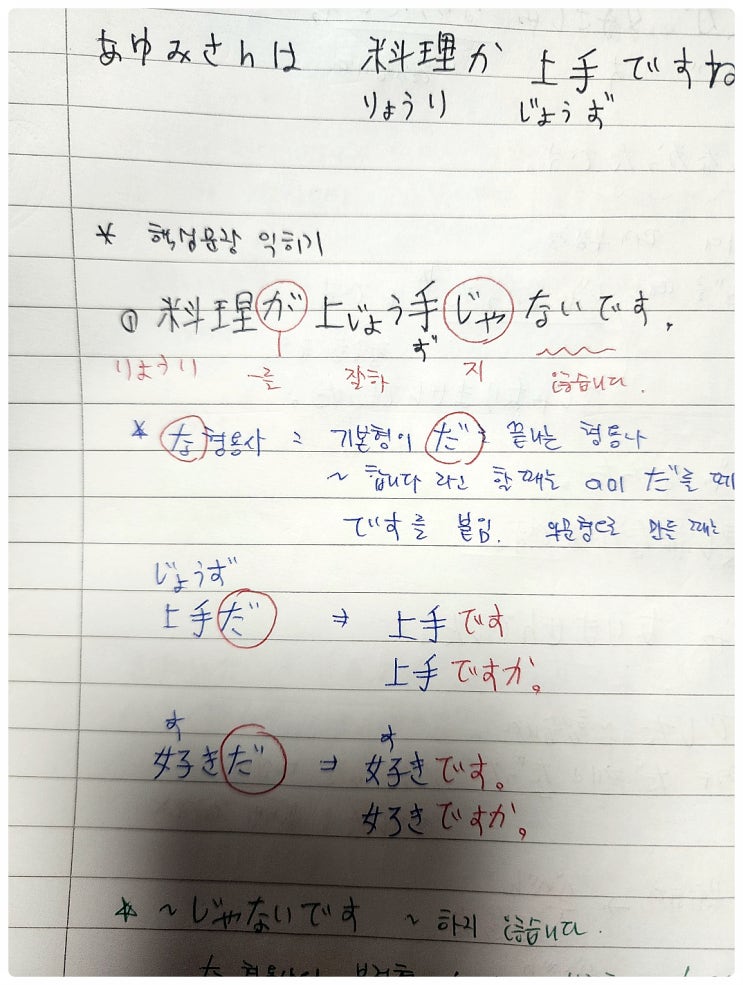 あゆみさんは 料理か 上手ですね
りょうり じょうず
* 핵심문장 익히기
① 料理が上じょう手じゃないです.
ず
りょうり ~를 잘하 지 않습니다.
* な형용사 : 기본형이 だ로 끝나는 형용사
~ 합니다 라고 할 때는 어미 だ를 떼
ですを 붙임. 의문형으로 만들 때는
じょうず
上手だ ⇒ 上手です
上手ですか。
す す
好きだ ⇒ 好きです。
好きですか。
* ~じゃないです ~ 하지 않습니다.
な형용사의 부정형